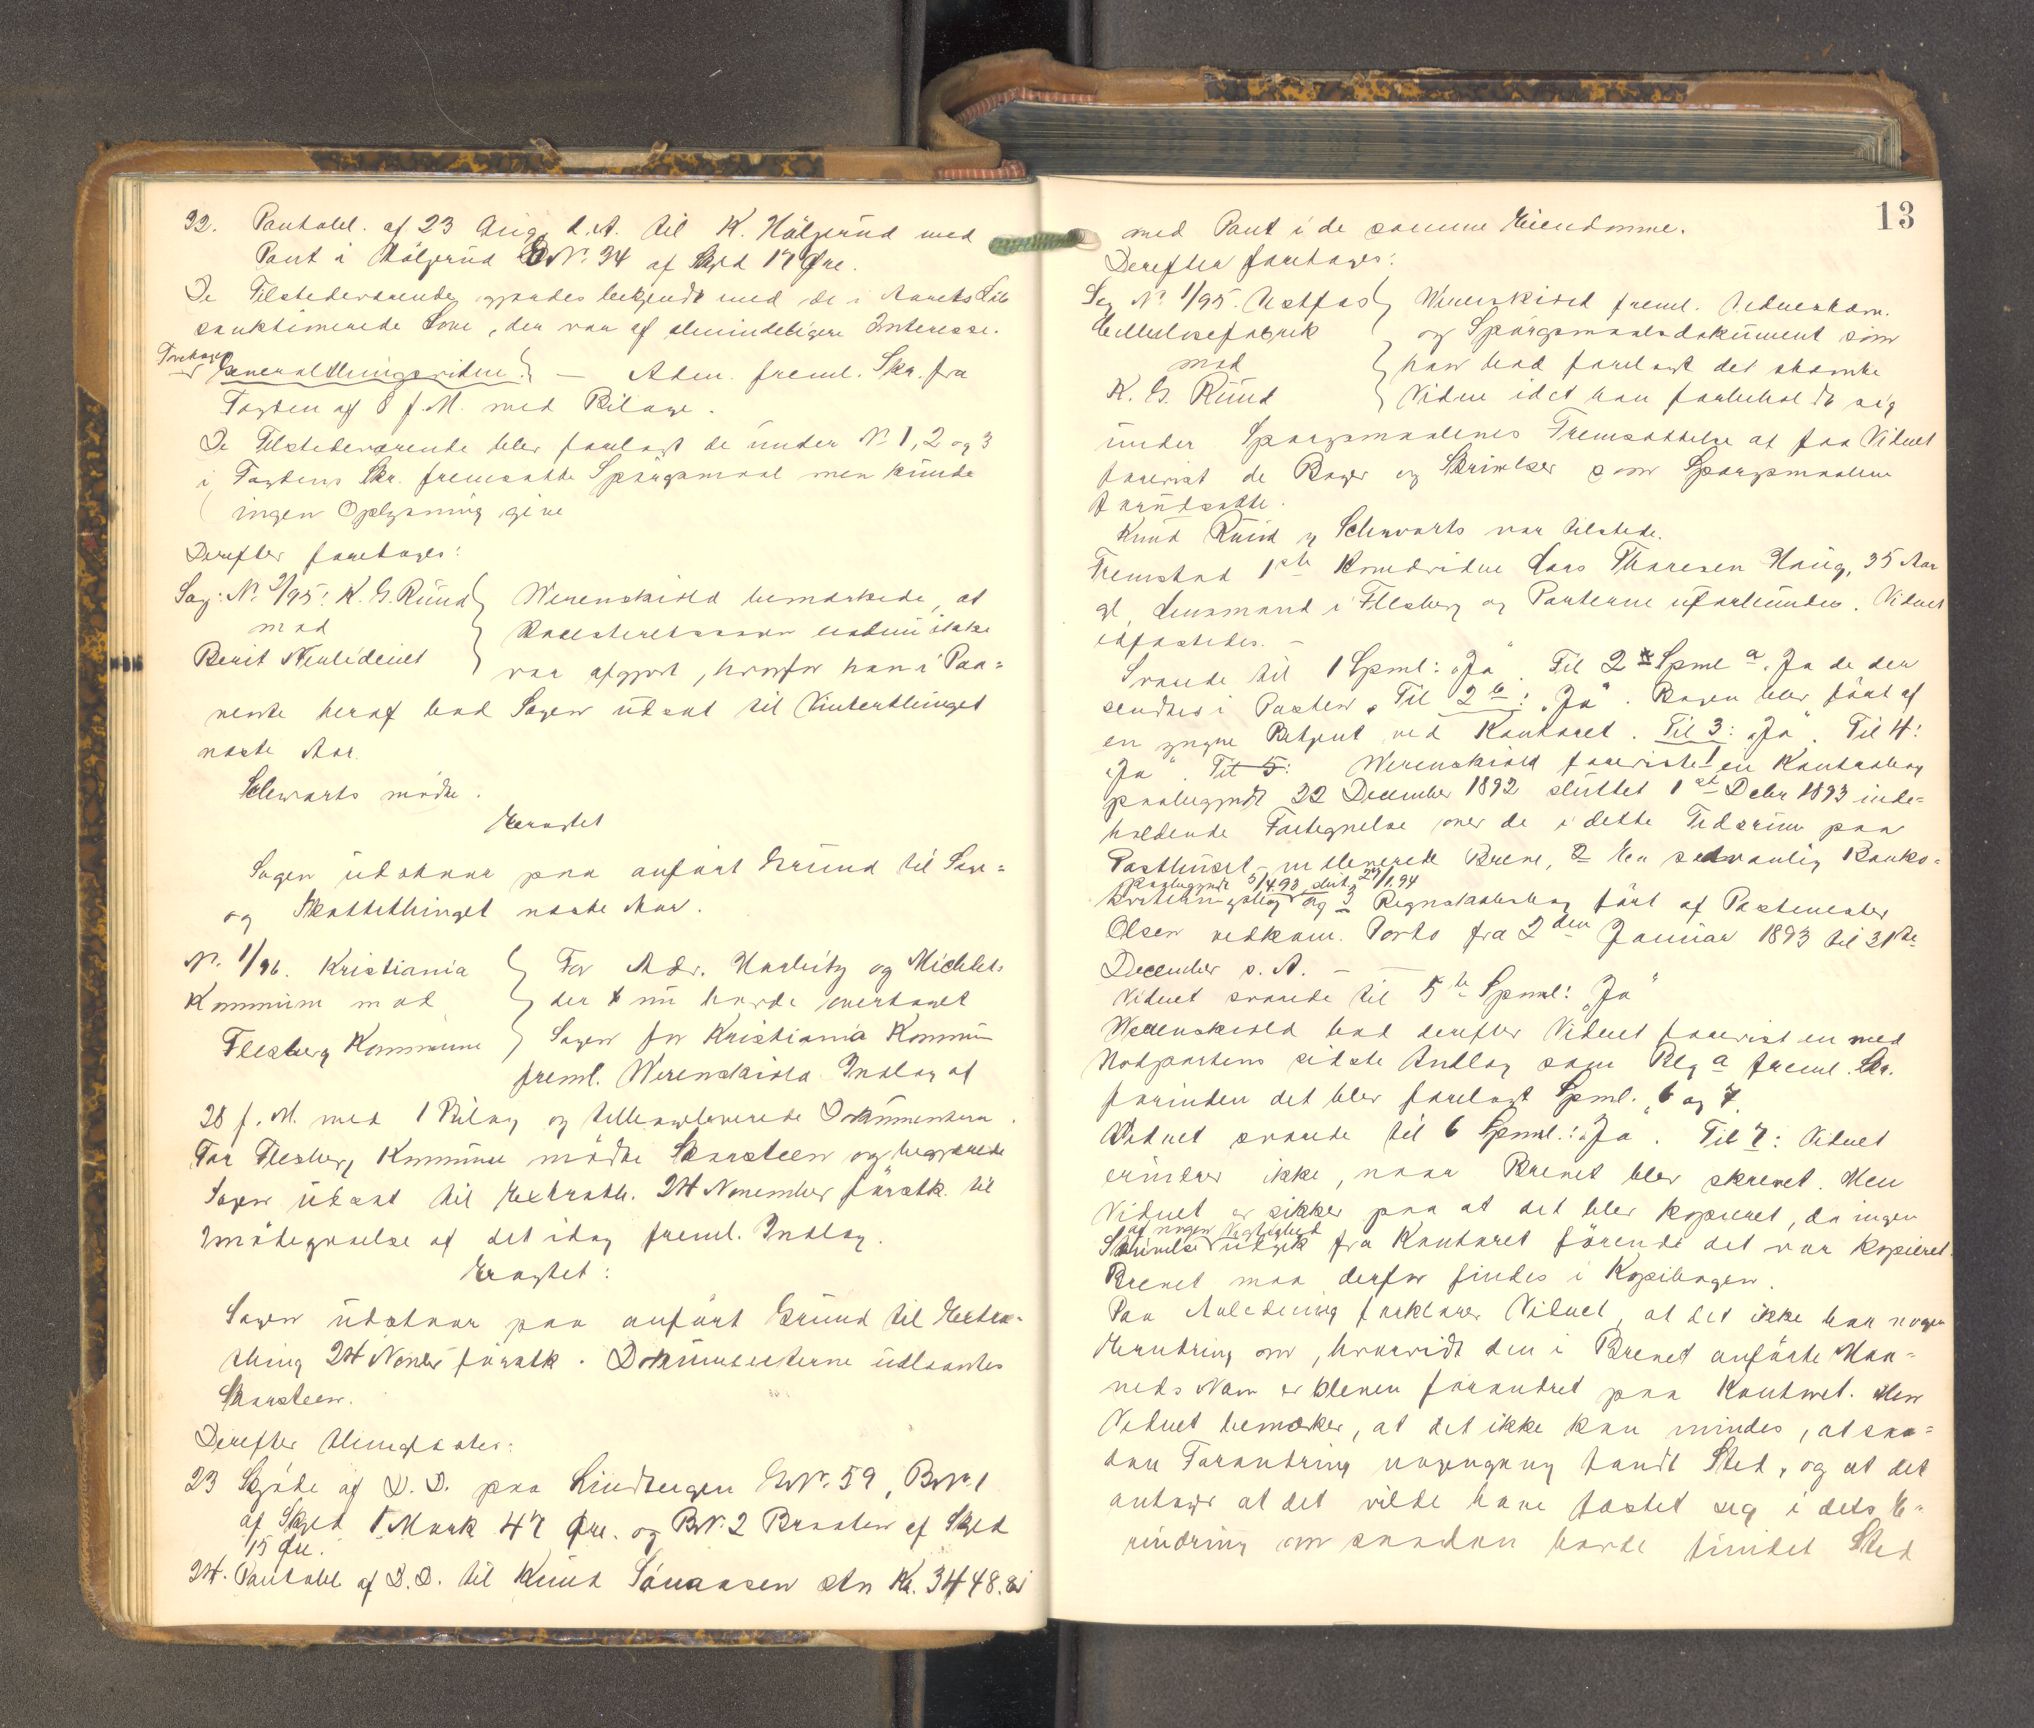 22. Pantobl. af 23 Aug. d. A. til K. Hölgerud med
Pant i Hölgerud BNr. 34 af Skyld 17 Øre.
De Tilstedeværende gjordes bekjendt med de i Aarets Löb
sanktionerede Love, der var af almindeligere Interesse.
Foretages
Generalthingsvidne. — Adm. freml. Skr. fra
Fogden af 8 f. M. med Bilage.
De Tilstedeværende blev forelagt de under No 1, 2 og 3
i Fogdens Skr. fremsatte Spörgsmaal men kunde
ingen Oplysning give
Derefter foretages:
Sag: No 2/95: K. G. Ruud
mod
Berit
Werenskiold bemærkede, at
endnu ikke
var afgjort, hvorfor han i Paa=
vente heraf bad Sagen udsat til Vinterthinget
næste Aar.
Schwartz mödte.
Eragtet
Sagen udstaar paa anfört Grund til Som=
og Skattethinget næste Aar.
No. 1/96. Kristiania
Kommune mod
Flesberg Kommune
For Adv. Harbitz og Michelet
der nu havde overtaget
Sagen for Kristiania Kommun
freml. Werenskiold Indlæg af
28 f. M. med 1 Bilag og tilbageleverede Dokumenterne.
For Flesberg Kommune mödte Skarsteen og begjærede
Sagen udsat til Extrath. 24 November förstk. til
Imödegaaelse af det idag freml. Indlæg.
Eragtet:
Sagen udstaar paa anfört Grund til Extra=
thing 24 Novbr förstk. Dokumenterne udlaantes
Skarsteen.
Derefter thinglæstes:
23 Skjöde af D. D. paa Lindhaugen GNr. 59, BNr. 1
af Skyld 1 Mark 47 Øre. og BNr. 2 Braaten af Skyld
15 Øre.
24. Pantobl af D. D. til Knud Sönassen stor Kr. 3448.
13
med Pant i de samme Eiendomme.
Derefter foretages:
Sag No 1/95. Vestfos
Cellulosefabrik
mod
K. G. Ruud
Werenskiold freml.
og Spörgsmaalsdokument som
han bad forelagt det stævnte
Vidne idet han forbeholdt sig
under Spörgsmaalenes Fremsættelse at faa Vidnet
forevist de Böger og Skrivelser som Spörgsmaalene
forudsatte.
Knud Ruud og Schwartz var tilstede.
Fremstod 1ste Hovedvidne Lars Thoresen Haug, 35 Aar
gl, Lensmand i Flesberg og Parterne uforbunden. Vidnet
edfæstedes. —
Svarede til 1 Spml: "Ja". Til 2 Spml a. Ja de der
sendtes i Posten. Til 2 b: "Ja". Bogen blev fört af
en yngre Betjent ved Kontoret. Til 3: "Ja". Til 4:
"Ja". Til 5: Werenskiold foreviste 1 en Kontrabog
paabegyndt 22 December 1892 sluttet 1st Decbr 1893 inde=
holdende Fortegnelse over de i dette Tidsrum paa
Posthuset indleverede Breve, 2 En sedvanlig Bank=
paabegyndt 5/4 93 slut. 24/1.94
Kvitteringsbog og 3 Regnskabsbog fört af Postmester
Olsen vedkom. Porto fra 2den Januar 1893 til 31te
December s. A. — —
Vidnet svarede til 5te Spml: "Ja"
Werenskiold bad derefter Vidnet forevist en med
Modpartens sidste Indlæg som Blg a freml. Skr.
forinden det blev forelagt Spml. 6 og 7.
Vidnet svarede til 6 Spml.: "Ja". Til 7: Vidnet
erindrer ikke, naar Brevet blev skrevet. Men
Vidnet er sikker paa at det blev kopieret, da ingen
af nogen Vigtighed
Skrivelse udgik fra Kontoret förend det var kopieret.
Brevet maa derfor findes i Kopibogen.
Paa Anledning forklarer Vidnet, at det ikke har nogen
Erindring om, hvorvidt den i Brevet anförte Maa=
neds Navn er bleven forandret paa Kontoret. Men
Vidnet bemærker, at det ikke kan mindes, at saa=
dan Forandring nogengang fandt Sted, og at det
antager at det vilde have fæstet sig i dets E=
rindring om saadan havde fundet Sted